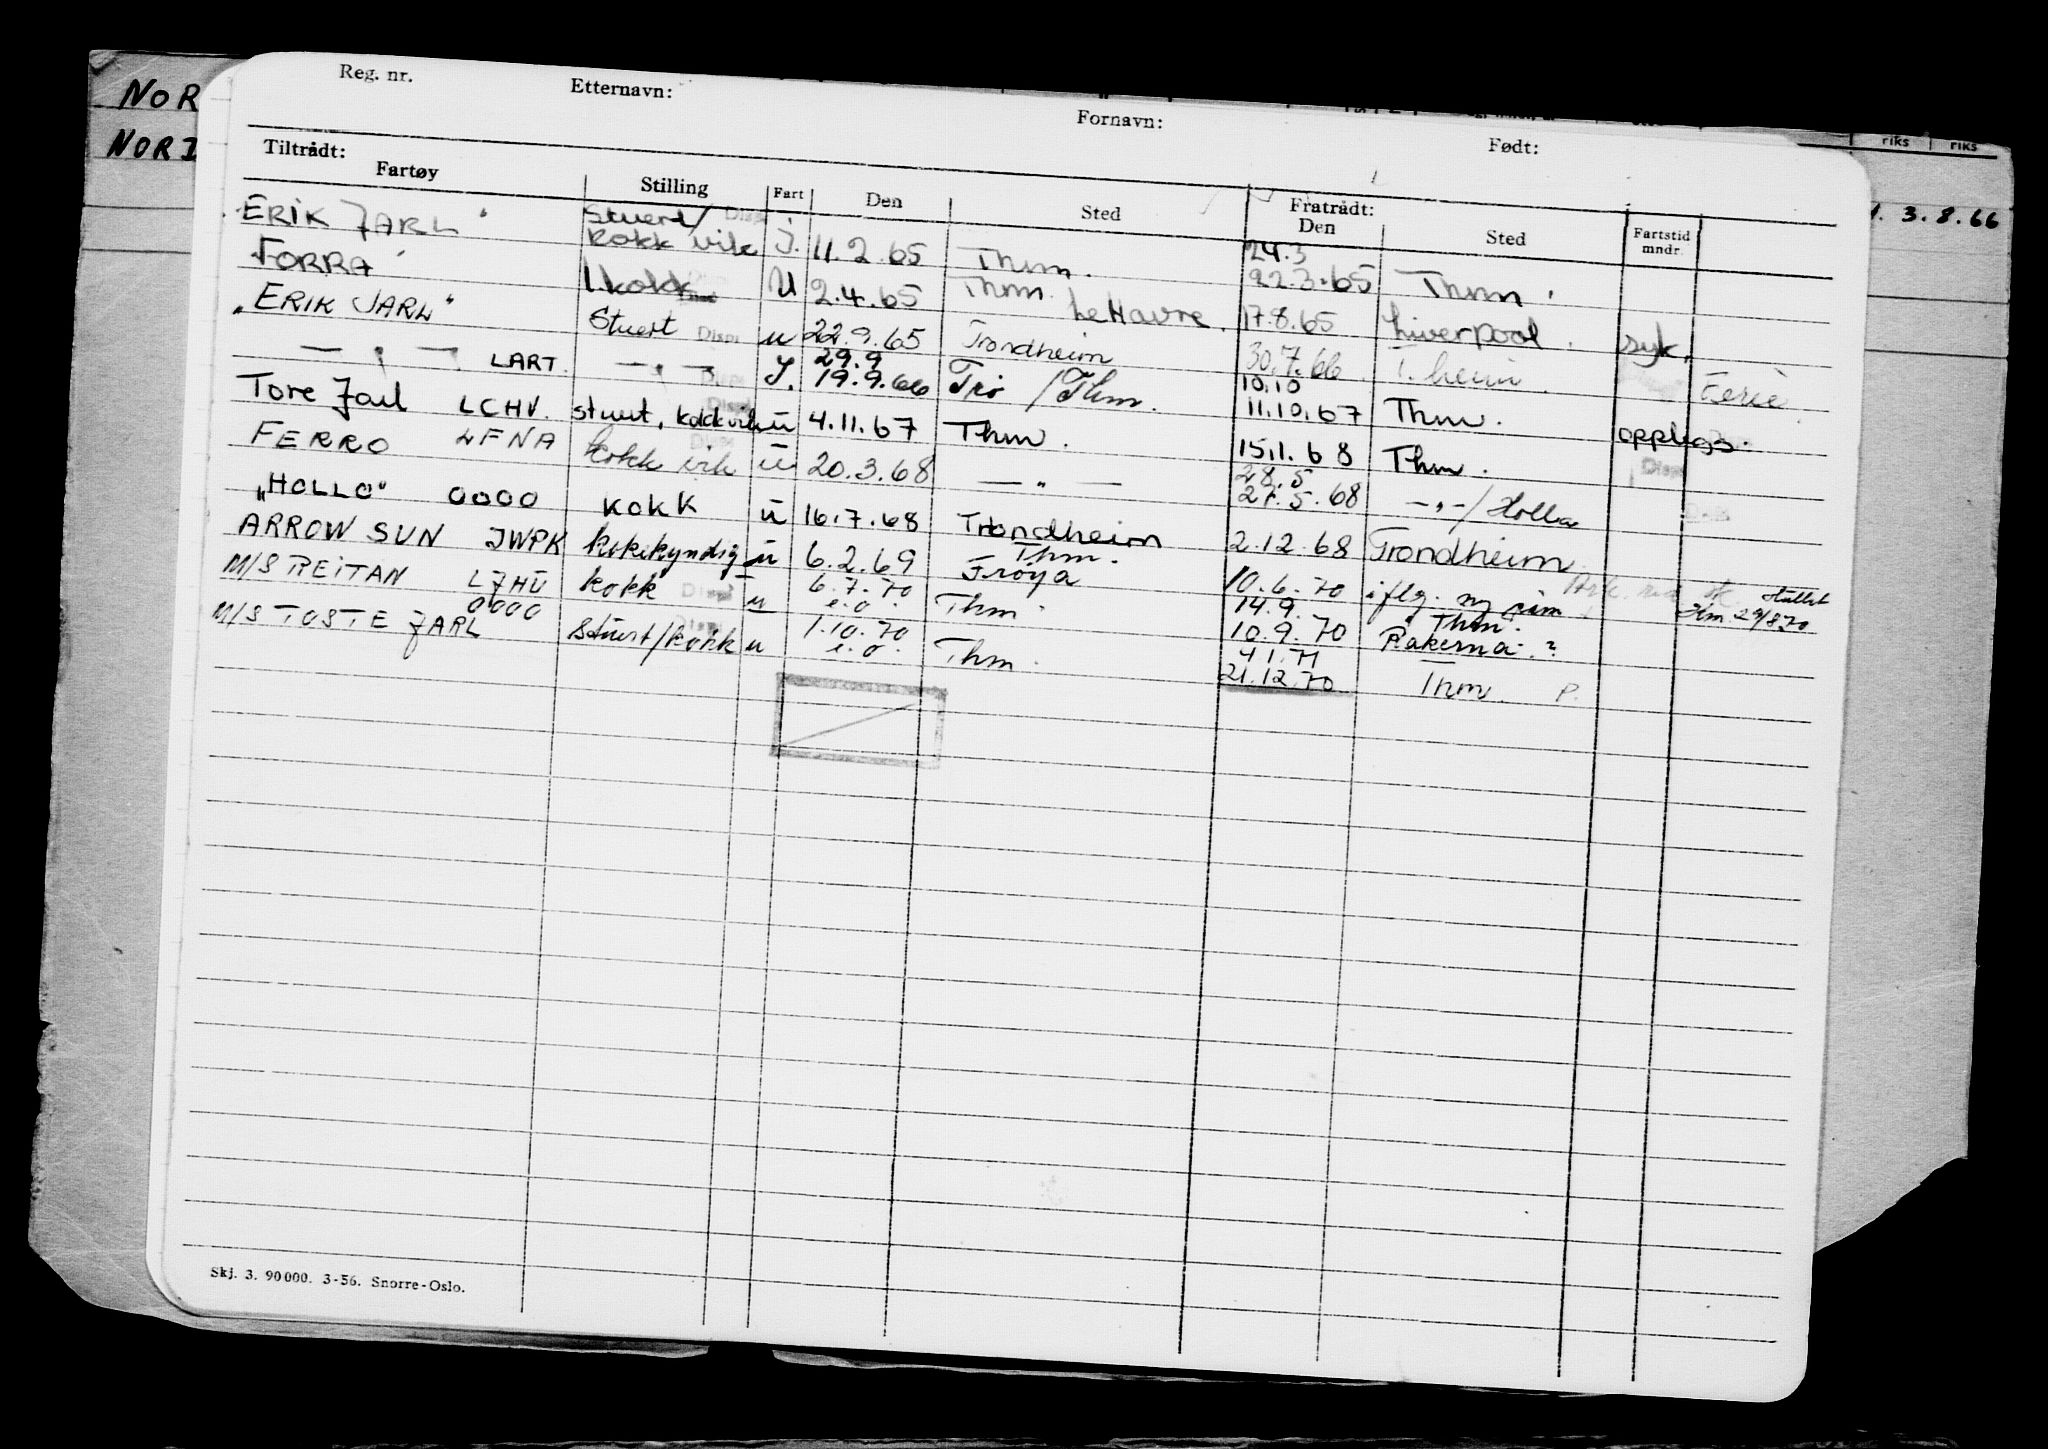 NOR
NORI
riks riks
3.8.66
Reg. nr. Etternavn: Fornavn: Født:
Tiltrådt: Fratrådt:
Fartøy Stilling Fart Den Sted Den Sted Fartstid mndr.
ERIK JARL" Stuert/ kokk vik J. 11.2.65 Thm. 24.3 22.3.65 Thm.
TORRA 1 kokk U 2.4.65 Thm. Le Havre. 17.8.65 Liverpool. syk.
"ERIK JARL" Stuert u 22.9.65 Trondheim 30.7.66. T.heim. Ferie.
— " — LART. — " — J. 29.9 19.9.66 Tro / Thm. 10.10 11.10.67 Thm.
Tore Jarl LCHV. stuert, kokk vik u 4.11.67 Thm. 15.1.68 Thm. opplags.
FERRO LFNA kokk vik u 20.3.68 — " — 28.5 27.5.68 — " — / Holla
"HOLLO" 0000 KOKK u 16.7.68 Trondheim 2.12.68 Trondheim
ARROW SUN JWPK kokkyndig u 6.2.69 Thm. Frøya 10.6.70 iflg. ny
M/S REITAN LJHU 0000 kokk u 6.7.70 e.o. Thm. 14.9. 10.9.70 Thm. Råkerna.?
M/S TOSTE JARL Stuert/kokk u 1.10.70 e.o. Thm. 4.1.71 21.12.70 Thm. P.
Skj. 3. 90000. 3-56. Snorre-Oslo.